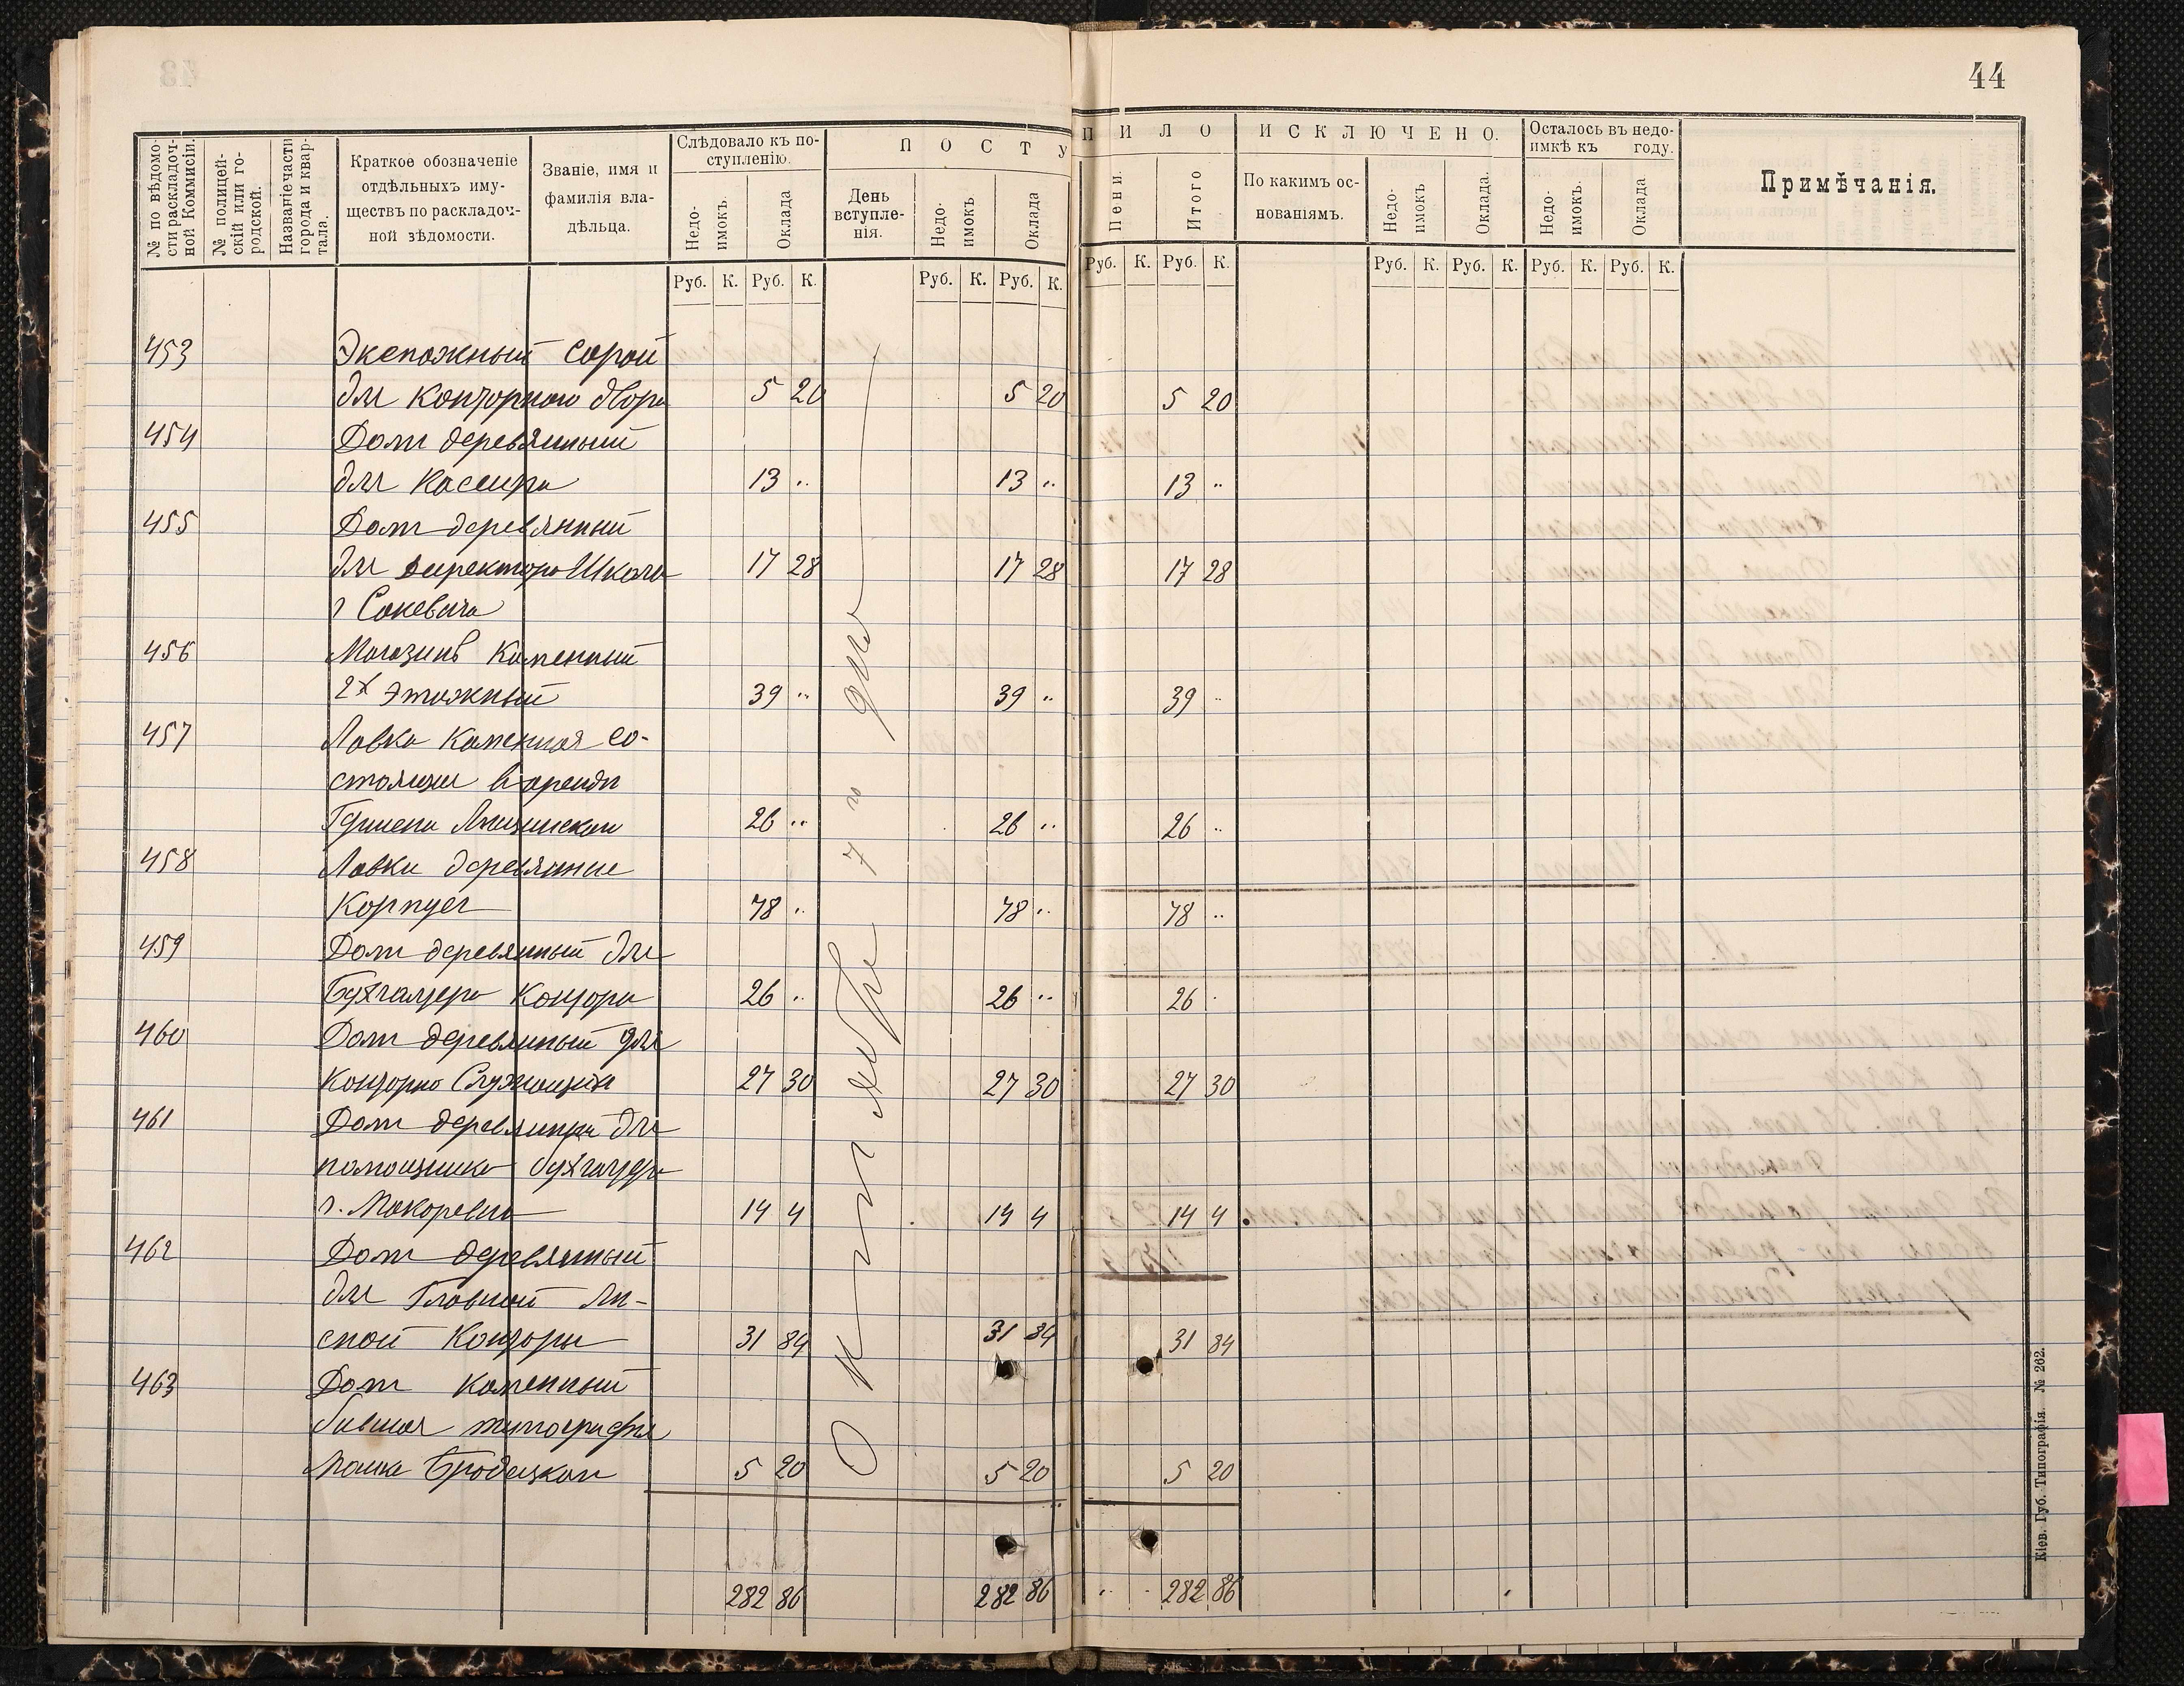 44
№ по вѣдомости раскладочной Коммисіи.
№ полицейскій или городской.
Названіе части города и квартала.
Краткое обозначеніе
отдѣльныхъ иму-
ществъ по раскладоч-
ной вѣдомости.
Званіе, имя и
фамилія вла-
дѣльца.
Слѣдовало къ по-
ступленію.
Недо-
имокъ.
Оклада
ПОСТУПИЛО
День
вступле-
нія.
Недо-
имокъ
Оклада
Пени.
Итого
ИСКЛЮЧЕНО.
По какимъ ос-
нованіямъ.
Недо-
имокъ
Оклада.
Осталось въ недо-
имкѣ къ году.
Недо-
имокъ.
Оклада
Примѣчанія.
Руб. К. Руб. К. Руб. К. Руб. К. Руб. К. Руб. К. Руб. К. Руб. К. Руб. К. Руб. К.
453 Экепажный Сарай
для Конторного двора 5 20 5 20 5 20
454 Дом деревянный
для Кассира 13 " 13 " 13 "
455 Дом деревянный
для Директора Школы 17 28 17 28 17 28
г
456 Магазинъ Каменный
2х этажный 39 " 39 " 39 "
457 Лавка Каменная со-
стоящи в аренди
26 " 26 " 26 "
458 Лавки деревянние
Корпус 78 " 78 " 78 "
459 Дом деревянный для
Бухгалтера Конторы 26 " 26 " 26 "
460 Дом деревянный для
Служащих 27 30 27 30 27 30
461 Дом для
помощника бухгалтера
г. Макаревича 14 4 14 4 14 4
462 Дом деревянный
для Главной Ли-
сной Конторы 31 84 31 84 31 84
463 Дом Каменный
бившая типография
5 20 5 20 5 20
282 86 282 86 " " 282 86
Октября 7 го дня
Кіев. Губ. Типографія. № 262.